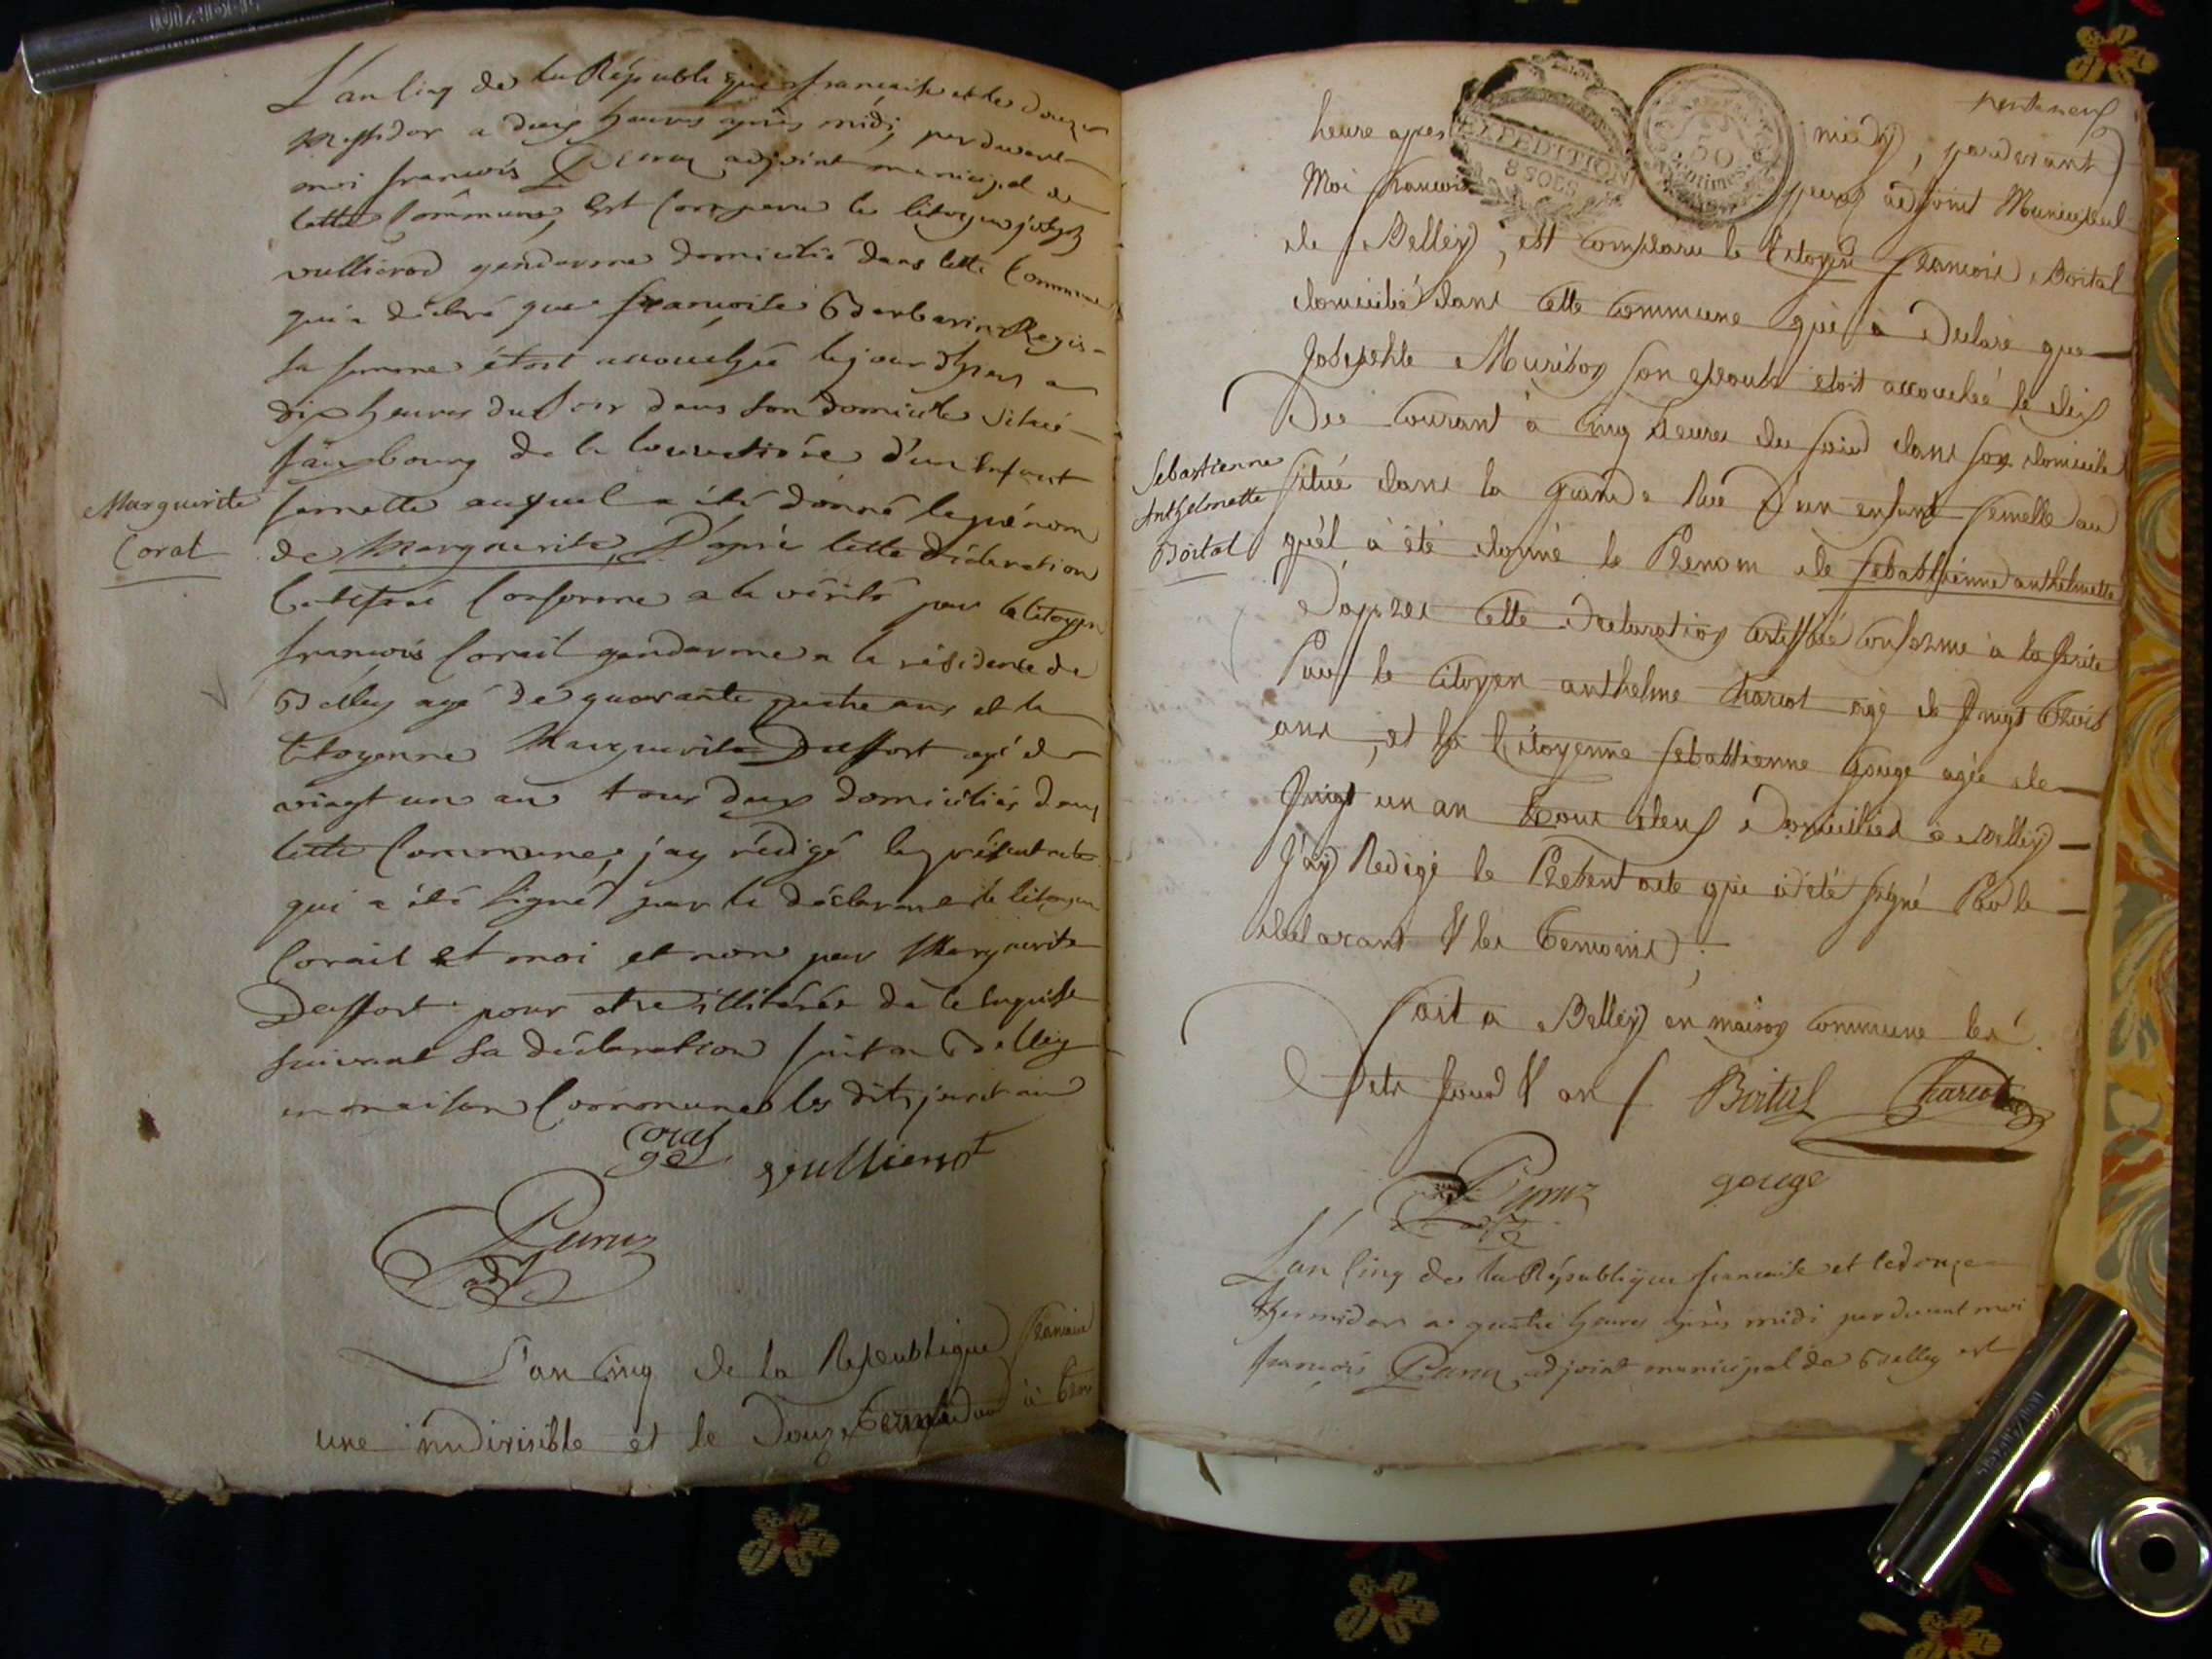 L'an cinq de la République française et le douze
Messidor a deux heures après midi, pardevant
moi françois Peruz adjoint municipal de
cette Commune, Est Comparu le Citoyen joseph
vullierod gendarme domicilié dans cette Commune
qui a déclaré que françoise Barbarin Regis
sa femme étoit accouchée le jour d'hyer a
dix heures du soir dans son domicile situé
fauxbourg de la d'un Enfant
femelle auquel a été donné le prénom
de Marguerite, D'après cette déclaration
Certifiée Conforme a la vérité par le Citoyen
françois Corail gendarme a la résidence de
Belley agé de quarante quatre ans et la
Citoyenne Marguerite Deffort agé de
vingt un an tous deux domiciliés dans
cette Commune, j'ay rédigé le présent acte
qui a été Signé par le déclarant le Citoyen
Corail et moi et non par Marguerite
Deffort pour être illitérée de ce enquise
suivant sa déclaration fait a Belley
en maison Commune les dits jour et an
Marguerite
Corat
Corat
Vullierod
Peruz
adj
L'an Cinq de la Republique francaise
une indivisible et le Douze Termidor à trois
heure apres midy, pardevant
EXPEDITION
8 SOLS
50
Centimes
Moi francois peruz adjoint Municipal
de Belley, est comparu le Citoyen francois Boital
domicilié dans cette commune qui à Declaré que
Josephte Muriboy son epouse etoit accouchée le dix
Du courant à cinq heures du soird dans son domicile
situé dans la grande Rue d'un enfant femelle au
quél à été donné le Prenom de sebastienne anthelmette
D'apres cette Declaration certiffiée conforme à la verité
Par le citoyen anthelme Chariot agé de Vingt trois
ans, et la Citoyenne sebastienne Gouge agée de
Vingt un an tous deux Domiciliés à Belley
J'ay Redigé le Present acte qui à été signé Par le
declarant & les temoins;
Sebastienne
Anthelmette
Boital
fait a Belley en maison commune les
Dits jour & an Boital Chariot
Peruz gouge
adj
L'an Cinq de la République francaise et le douze
thermidor a quatre heures après midi pardevant moi
françois Peruz adjoint municipal de Belley est